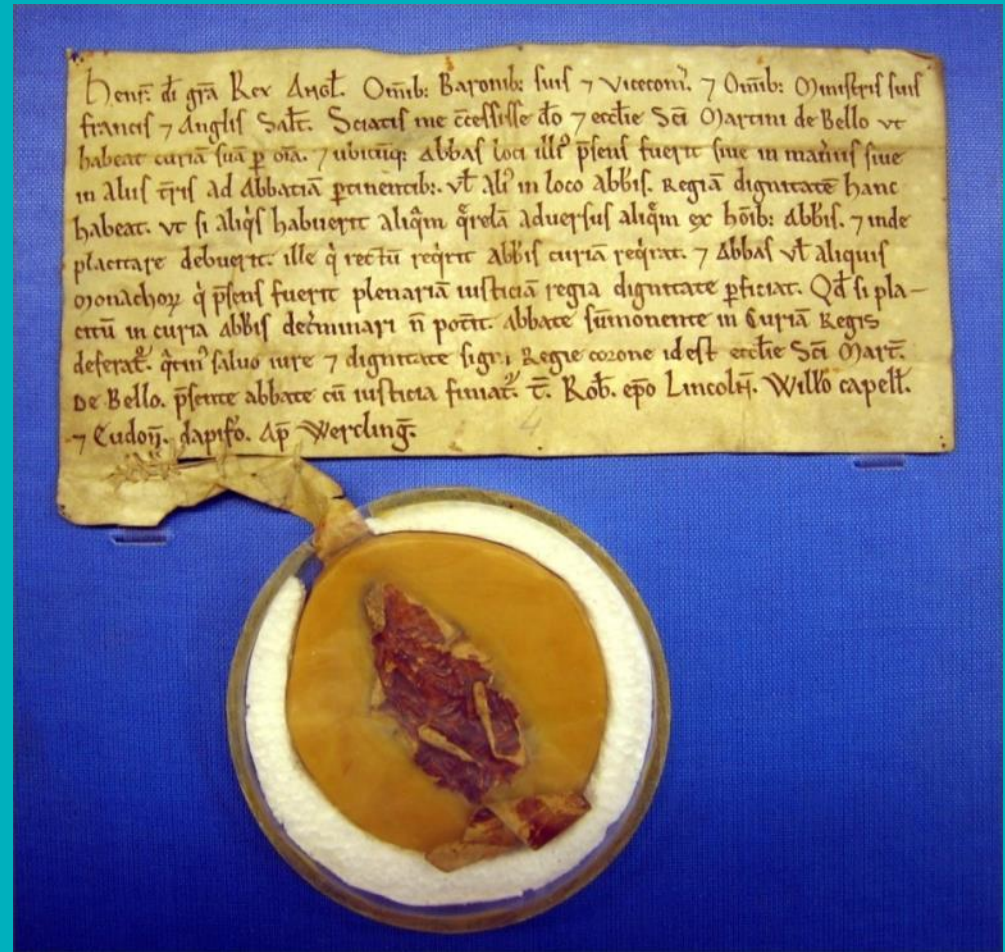 henr̄. di gr̄a Rex Angl̄. Om̄ib: Baronib: suis ⁊ vicecom̄. ⁊ Om̄ib: Ministris suis
francis ⁊ Anglis Salt̄. Sciatis me c̄cessisse dō ⁊ eccl̄ie Sc̄i Martini de Bello vt
habeat curiā suā p̱ oīa. ⁊ ubicūq: Abbas loci illiꝰ p̄sens fuerit siue in man̄iis siue
in aliis t̄ris ad Abbatiā p̱tinentib:. vl̄ aliꝰ in loco abb̄is. Regiā dignitatē hanc
habeat. vt si aliq̄s habuerit aliq̄m q̄relā aduersus aliq̄m ex hōib: Abb̄is. ⁊ inde
placitare debuerit. ille q̄ rectū req̄rit abb̄is curiā req̄rat. ⁊ Abbas vl̄ aliquis
Monachoꝝ q̄ p̄sens fuerit plenariā iusticiā regia dignitate p̱ficiat. Qd̄ si pla-
citū in curia abb̄is det̄minari n̄ pot̄it. Abbate sūmonente in Curiā Regis
deferat᷑. saluo iure ⁊ dignitate Regie corone id est eccl̄ie Sc̄i Mart̄.
De Bello. p̄sente abbate cū iusticia finiat᷑. T̄. Rob̄. ep̄o Lincoln̄. Willo̅ capell̄.
⁊ Eudon̄. dapif̄o. Ap̄ Werling̅.
4